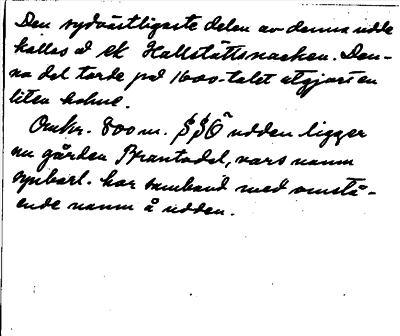 Den sydvästligaste delen av denna udde
kallas å ek Hallstattsnacken. Den-
na del torde på 1600-talet utgjort en
liten holme.
Omkr. 800 m. SSÖ udden ligger
nu gården Brantadal, vars namn
synbarl. har samband med ovanstå-
ende namn å udden.